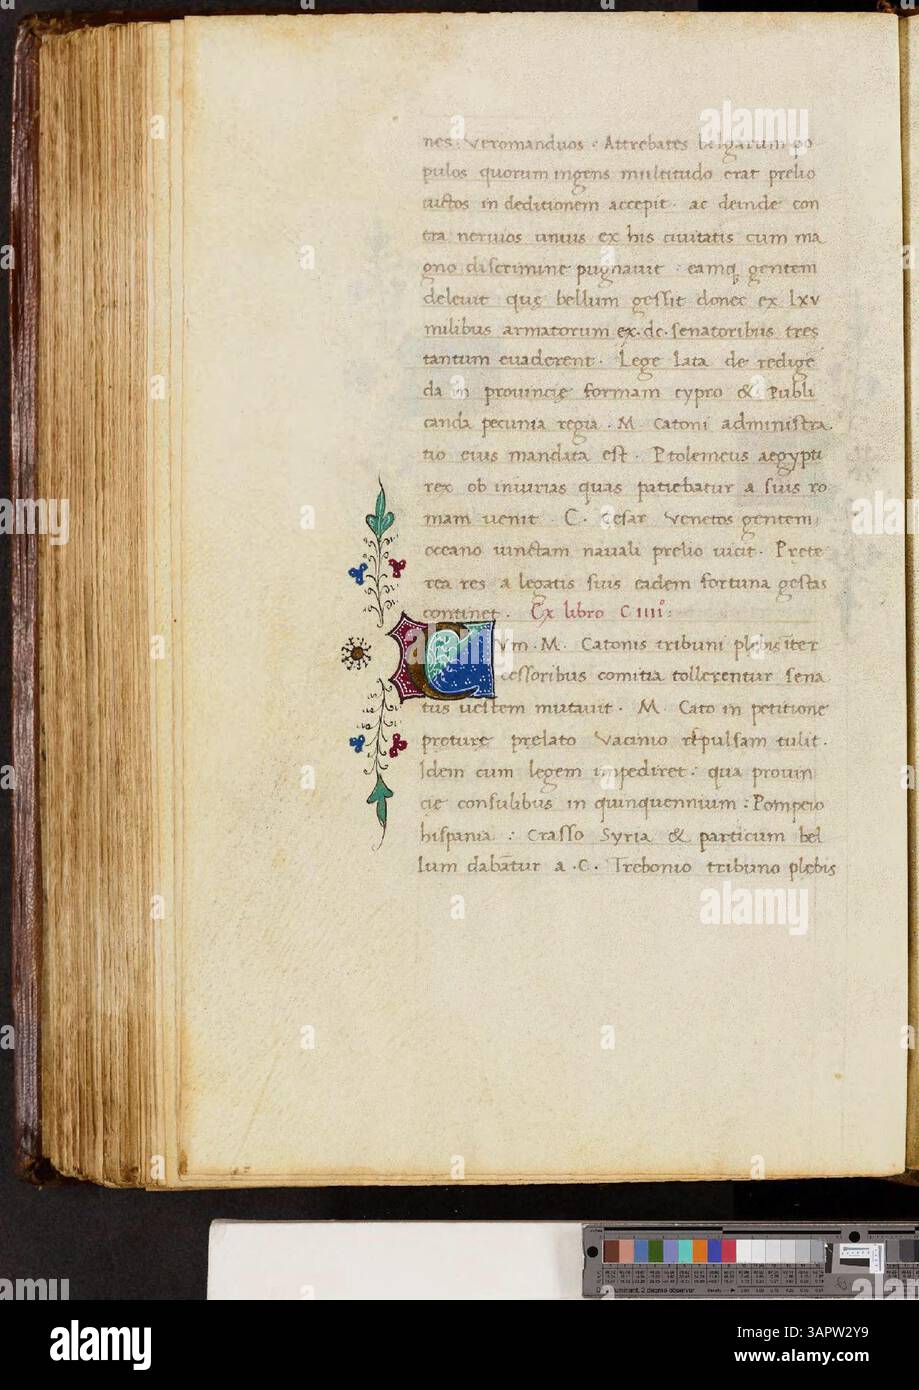 nes · Veromanduos · Attrebates belgarum po
pulos quorum ingens multitudo erat prelio
uictos in deditionem accepit · ac deinde con
tra neruios unius ex his ciuitatis cum ma
gno discrimine pugnauit · eamq gentem
deleuit quę bellum gessit donec ex lxv
milibus armatorum ex · dc · senatoribus tres
tantum euaderent · Lege lata de redige
da in prouincię formam cypro & Publi
canda pecunia regia · M · Catoni administra
tio eius mandata est · Ptolemeus aegypti
rex ob iniurias quas patiebatur a suis ro
mam uenit · C · Cesar Venetos gentem
oceano uinctam nauali prelio uicit · Prete
rea res a legatis suis eadem fortuna gestas
continet · Ex libro C IIII°:
CVm · M · Catonis tribuni plebis iter
cessoribus comitia tollerentur sena
tus uestem mutauit · M · Cato in petitione
pręturę prelato Vacinio repulsam tulit ·
Idem cum legem impediret · qua prouin
cię consulibus in quinquennium : Pompeio
hispania : Crasso Syria & particum bel
lum dabatur a · C · Trebonio tribuno plebis
alamy
Image ID: 3APW2Y9
www.alamy.com